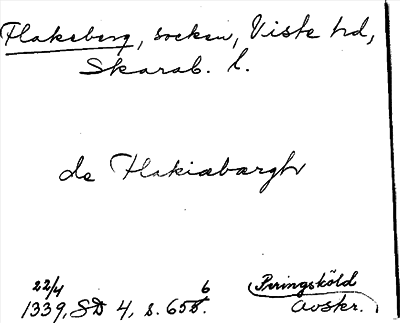 Flakeberg, socken, Viste hd,
Skarab. l.
de Flakiabærgh
22/4 1339, SD 4, s. 656
Peringsköld
avskr.